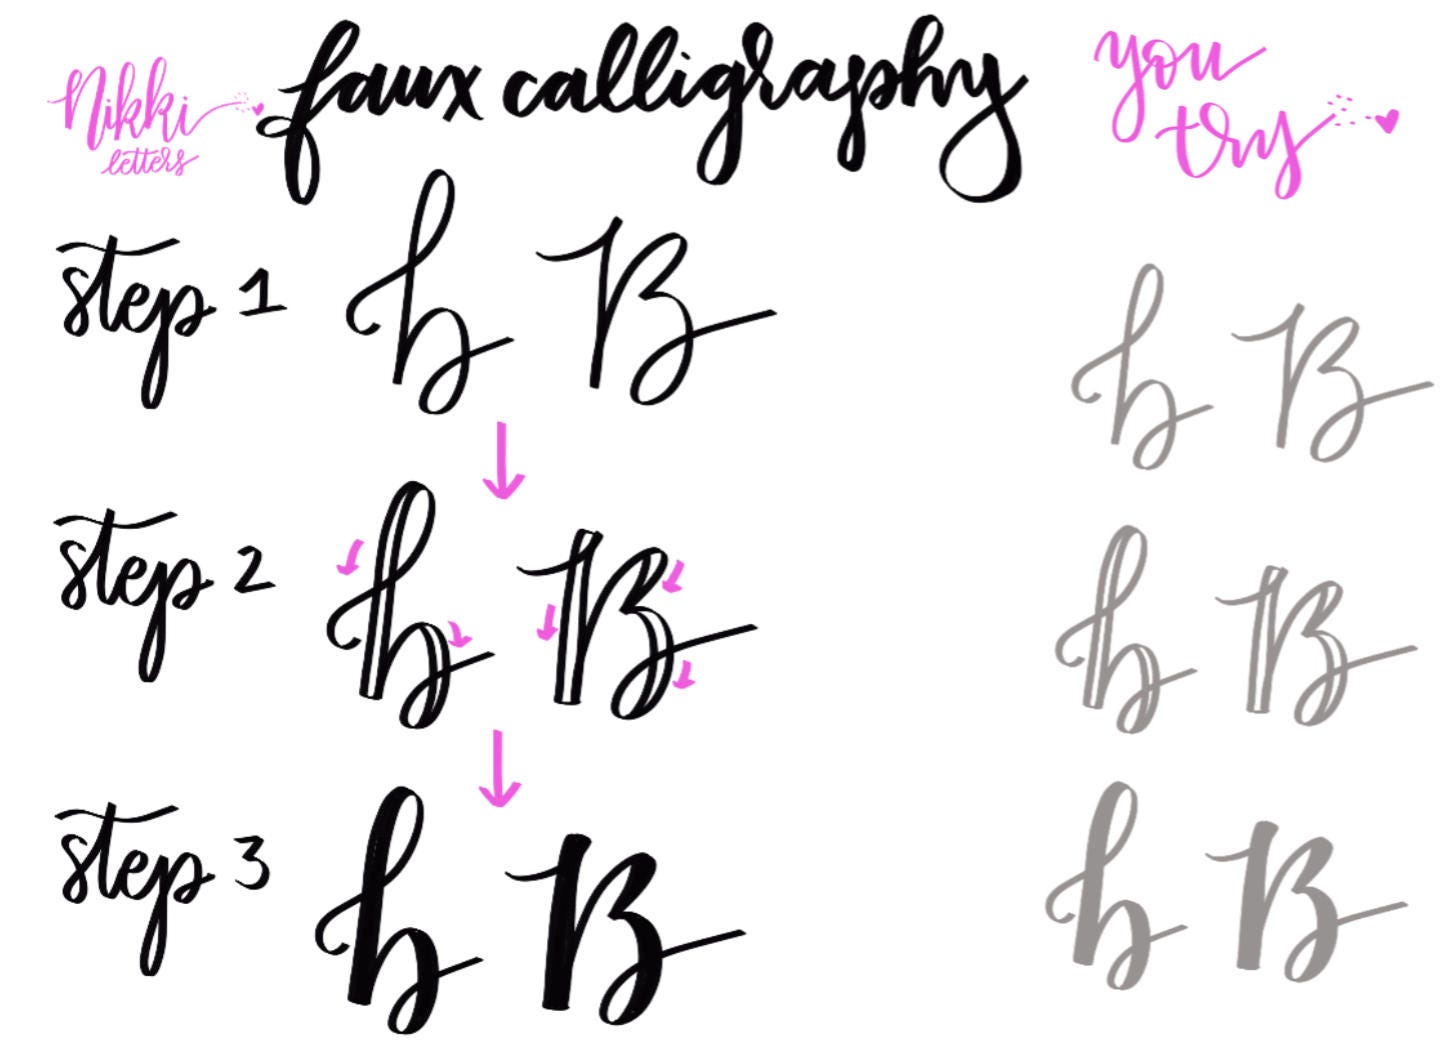 Nikki
letters
faux calligraphy
you
try
step 1
h B
h B
step 2
h B
h B
step 3
h B
h B